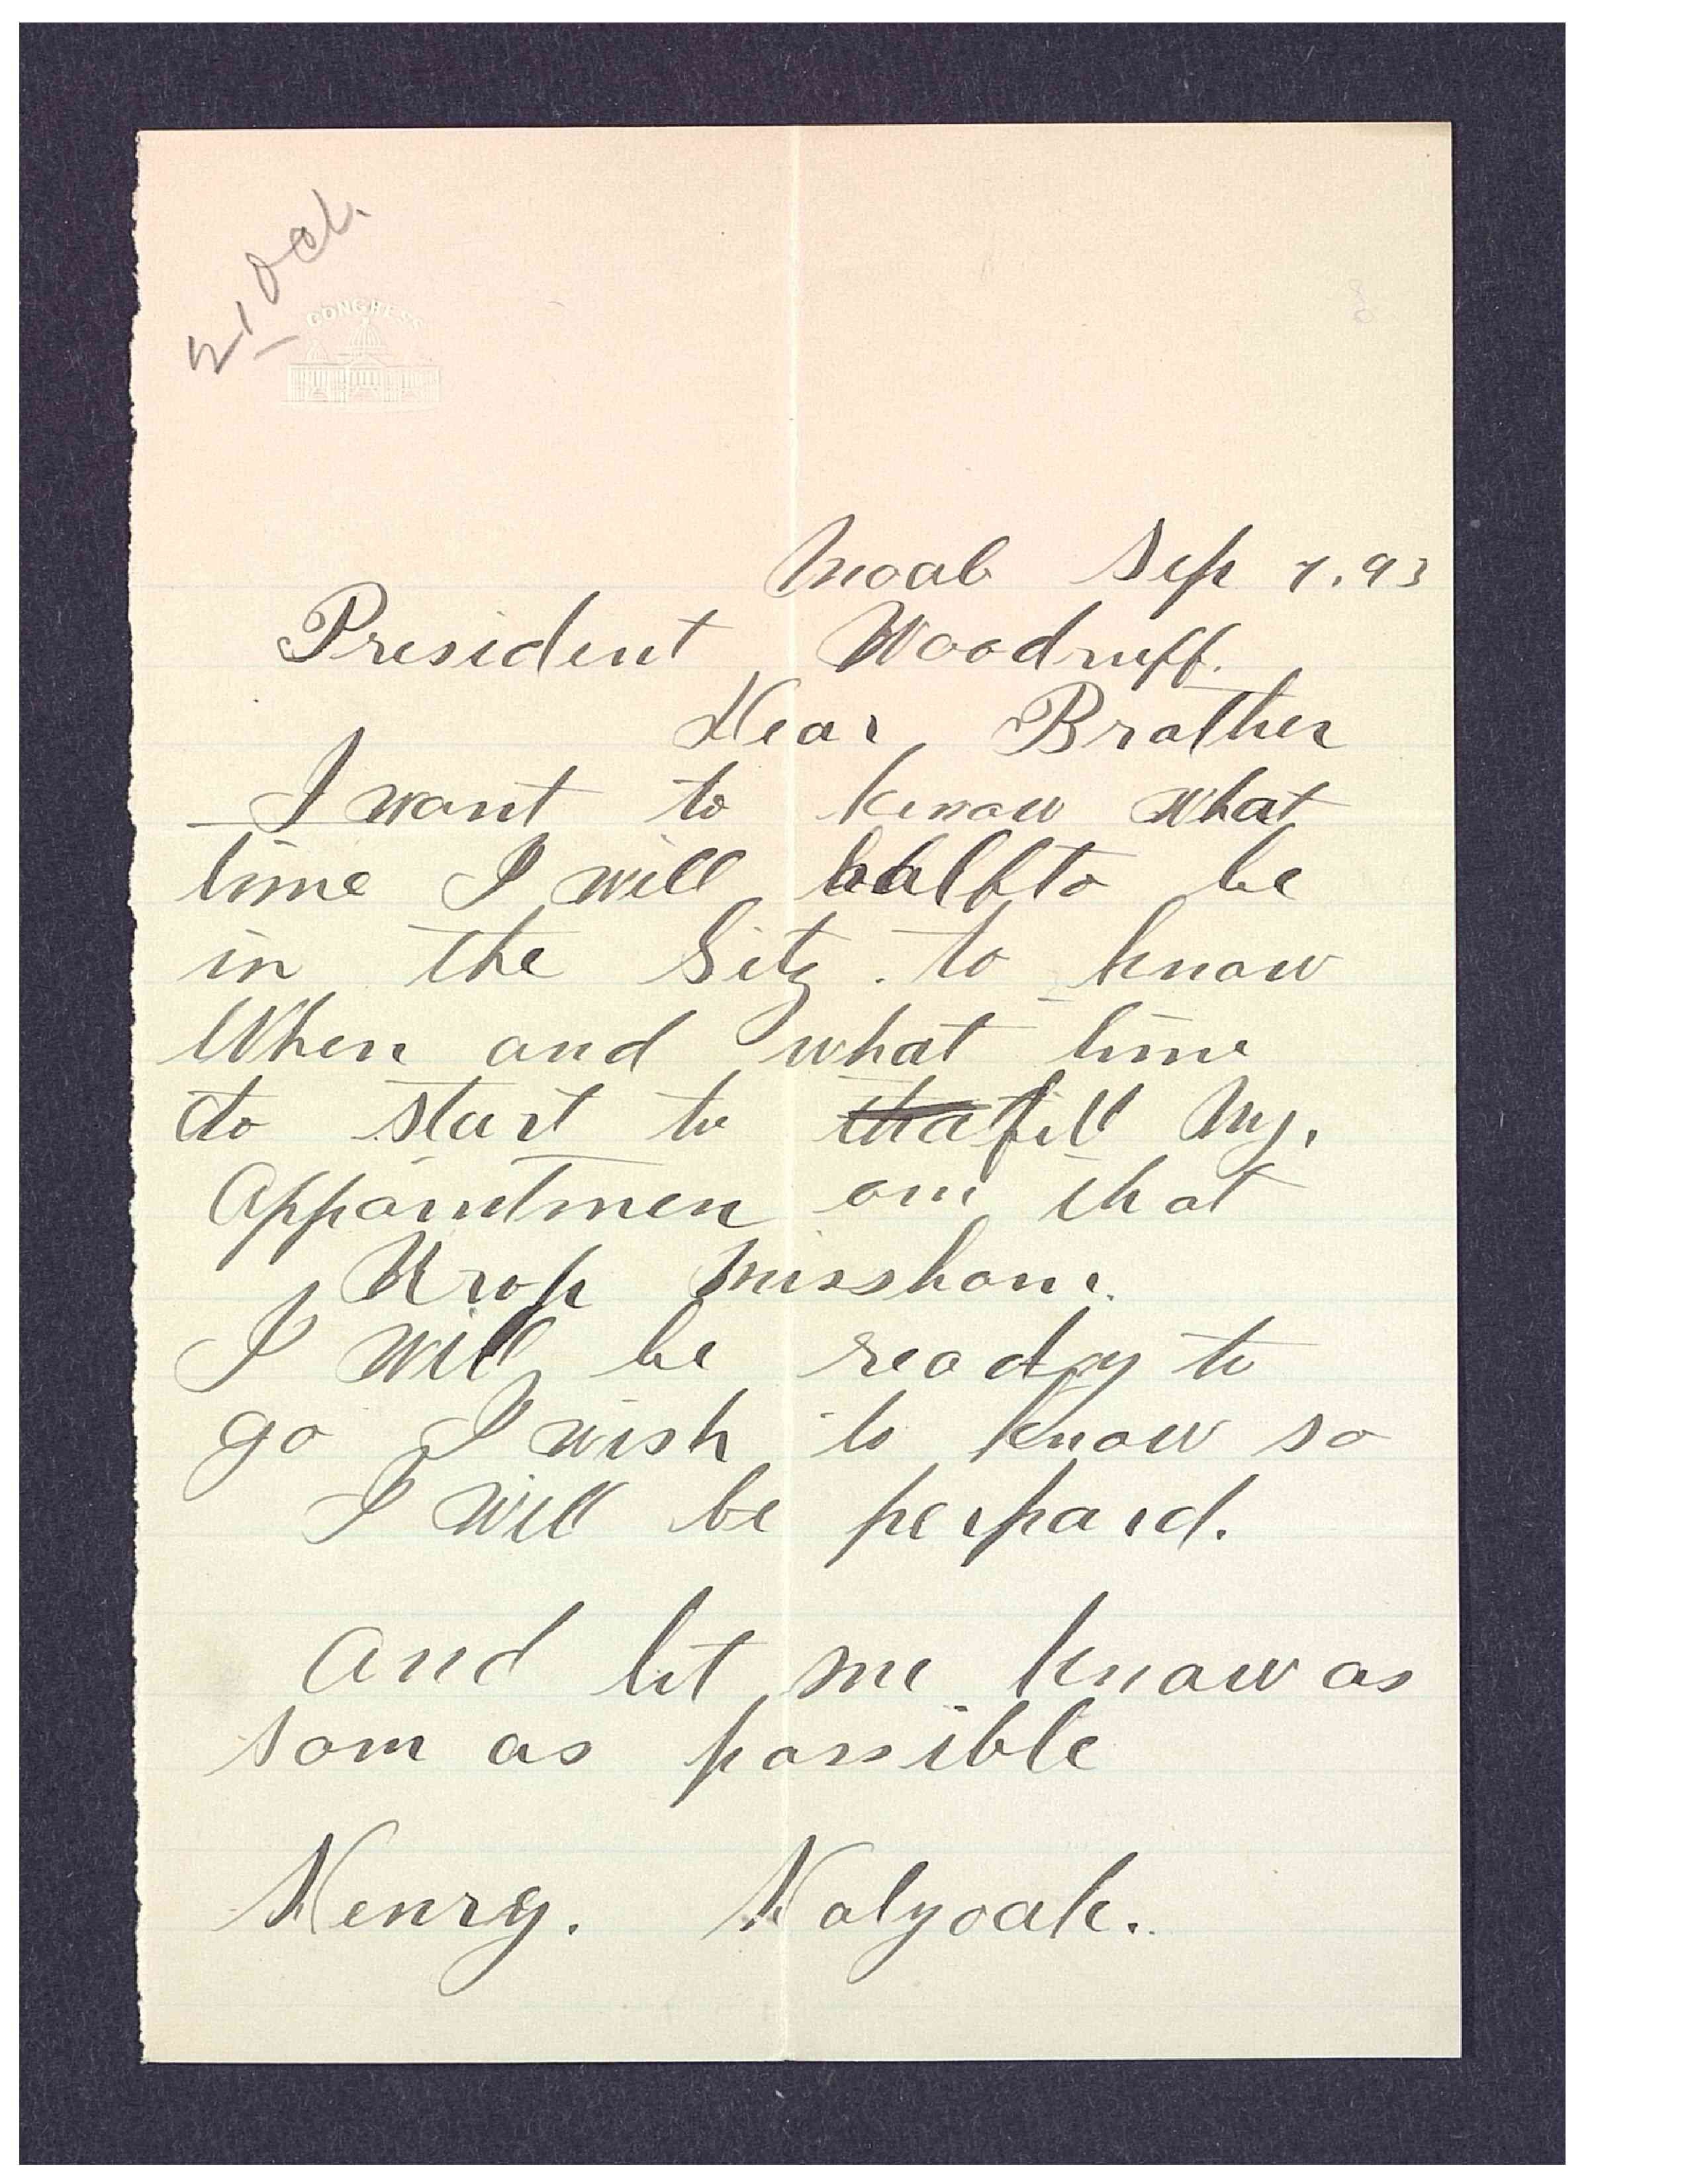 21 Oct.
CONGRESS
Moab Sep 7, 93
President Woodruff.
Dear Brother
I want to know what
time I will haft to be
in the Sity. to know
When and what time
to start to tha fill My.
Appointmen on that
Urop misshon.
I will be ready to
go I wish to know so
I will be perpard.
And let me know as
soon as possible
Henry. Holyoak.